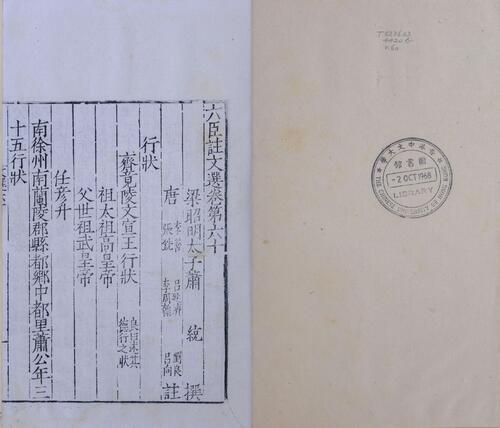 六臣註文選卷第六十
梁昭明太子蕭統撰
唐
李善
呂延濟
劉良
張銑
李周翰
呂向
註
行狀
齊竟陵文宣王行狀
良曰述其
德行之狀
祖太祖高皇帝
父世祖武皇帝
任彥升
南徐州南蘭陵郡縣都鄉中都里蕭公年三
十五行狀
香港中文大學
圖書館
-2 OCT 1968
LIBRARY